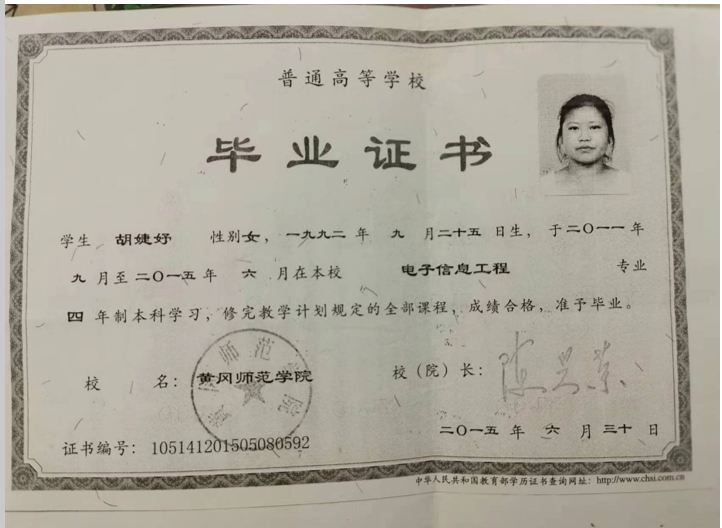 普通高等学校
毕业证书
学生 胡婕妤 性别女，一九九二年 九 月二十五日生，于二〇一一年
九月至二〇一五年 六 月在本校 电子信息工程 专业
四年制本科学习，修完教学计划规定的全部课程，成绩合格，准予毕业。
校 名：黄冈师范学院 校（院）长：
二〇一五年 六 月 三十日
证书编号：105141201505080592
中华人民共和国教育部学历证书查询网址：http://www.chsi.com.cn